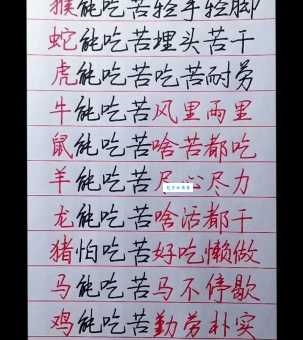 猴能吃苦轻手轻脚
蛇能吃苦埋头苦干
虎能吃苦吃苦耐劳
牛能吃苦风里雨里
鼠能吃苦啥苦都吃
羊能吃苦尽心尽力
龙能吃苦啥活都干
猪怕吃苦好吃懒做
马能吃苦马不停歇
鸡能吃苦勤劳朴实